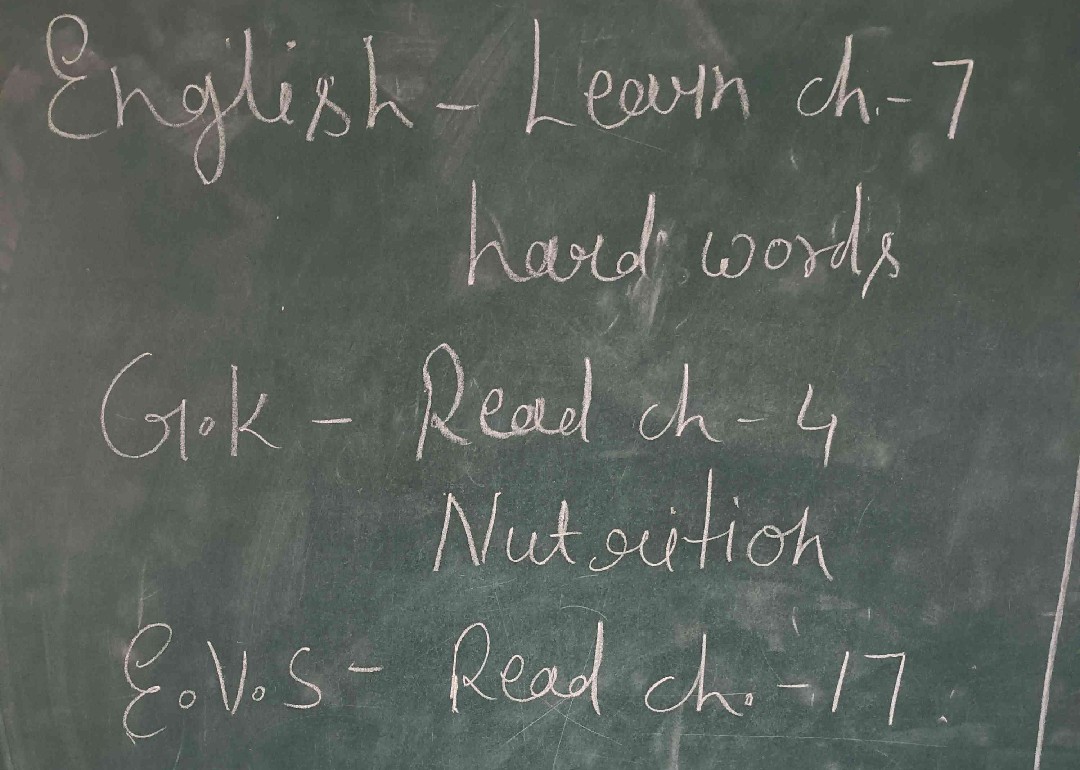 English - Learn ch.- 7
hard words
G.K - Read ch - 4
Nutrition
E.V.S - Read ch. - 17.